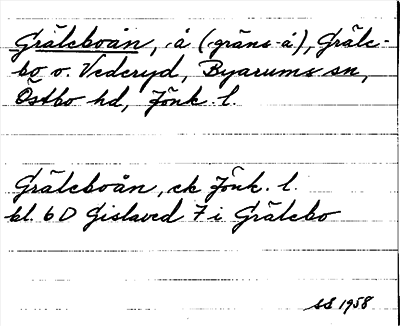 Gräleboån, å (gräns-å), Gräle-
bo o. Vederyd, Byarums sn,
Östbo hd, Jönk. l.
Gräleboån, ek Jönk. l.
bl. 6D Gislaved 7i Grälebo
SS 1958